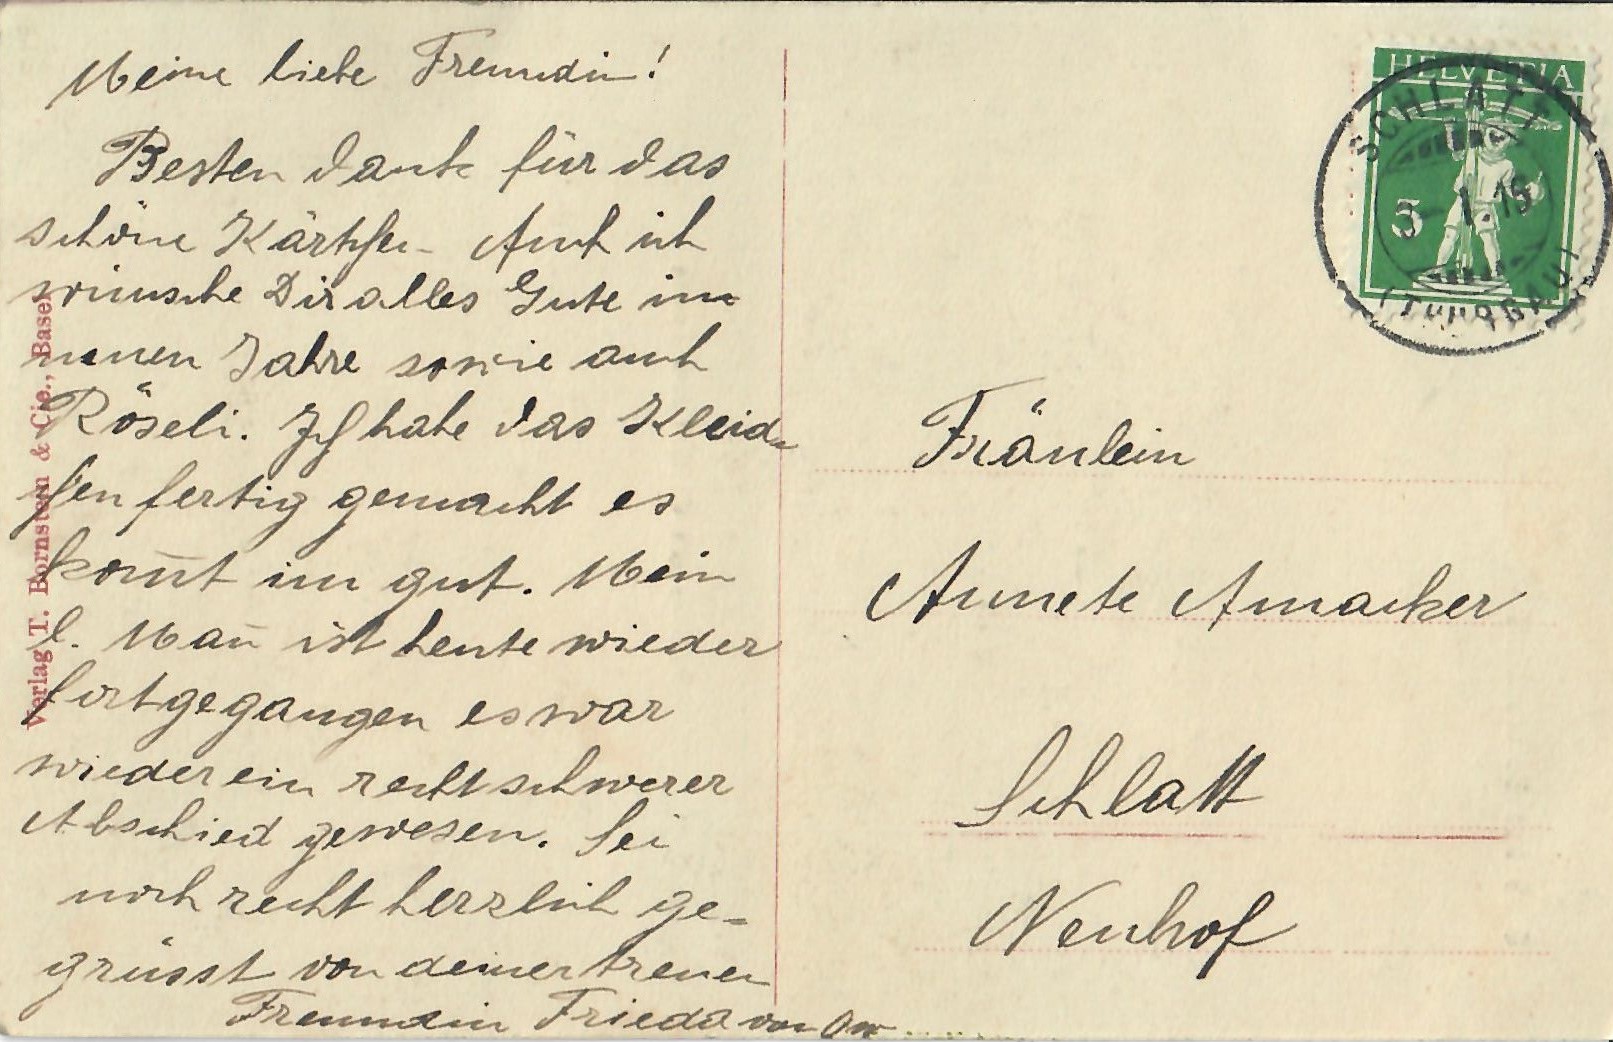 Meine liebe Freundin!
Besten Dank für das
schöne Kärtchen. Auch ich
wünsche Dir alles Gute im
neuen Jahre sowie auch
Röseli. Ich habe das Kleid-
chen fertig gemacht es
kom̄t im gut. Mein
l. Man̄ ist heute wieder
fortgegangen es war
wieder ein recht schwerer
Abschied gewesen. Sei
noch recht herzlich ge-
grüsst von deiner treuen
Freundin Frieda von
Verlag T. Bornstein & Cie., Basel
HELVETIA
SCHLATT
1.19
5
(THURGAU)
Fräulein
Annete Amacker
Schlatt
Neuhof